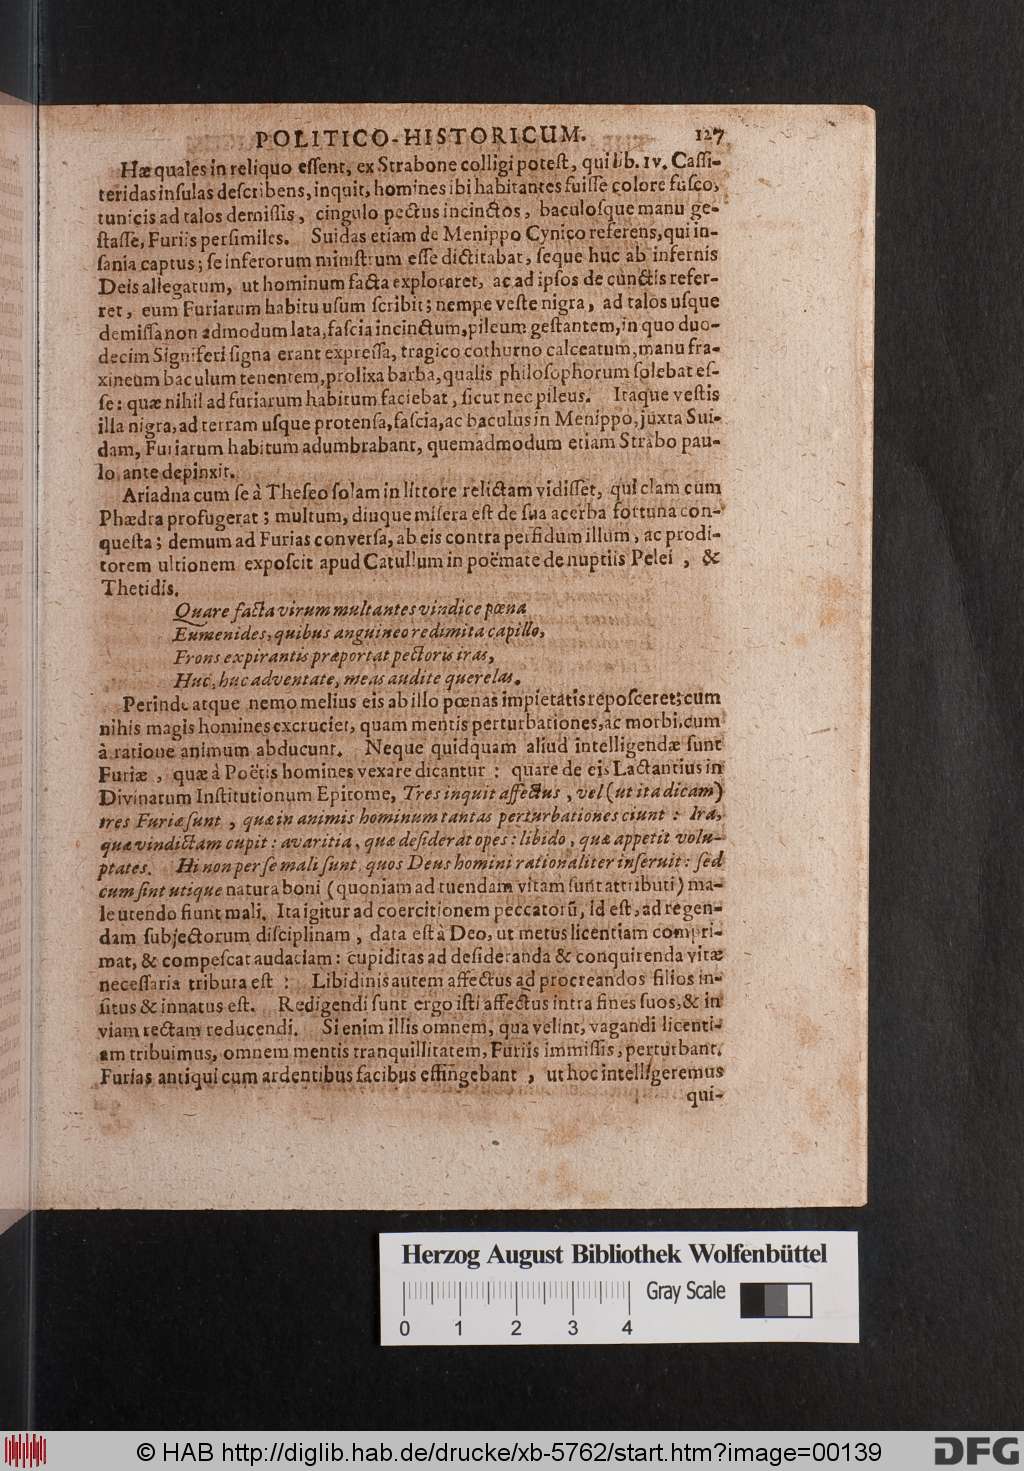 POLITICO-HISTORICUM. 127
Hæ quales in reliquo eſſent, ex Strabone colligi poteſt, qui lib. IV. Caſſi-
teridas inſulas deſcribens, inquit, homines ibi habitantes fuiſſe colore fuſco,
tunicis ad talos demiſſis, cingulo pectus incinctos, baculoſque manu ge-
ſtaſſe, Furiis perſimiles. Suidas etiam de Menippo Cynico referens, qui in-
ſania captus; ſe inferorum miniſtrum eſſe dictitabat, ſeque huc ab infernis
Deis allegatum, ut hominum facta exploraret, ac ad ipſos de cunctis refer-
ret, eum Furiarum habitu uſum ſcribit; nempe veſte nigra, ad talos uſque
demiſſa non admodum lata, faſcia incinctum, pileum geſtantem, in quo duo-
decim Signiferi ſigna erant expreſſa, tragico cothurno calceatum, manu fra-
xineum baculum tenentem, prolixa barba, qualis philoſophorum ſolebat eſ-
ſe: quæ nihil ad furiarum habitum faciebat, ſicut nec pileus. Itaque veſtis
illa nigra, ad terram uſque protenſa, faſcia, ac baculus in Menippo, juxta Sui-
dam, Furiarum habitum adumbrabant, quemadmodum etiam Strabo pau-
lo ante depinxit.
Ariadna cum ſe à Theſeo ſolam in littore relictam vidiſſet, qui clam cum
Phædra profugerat; multum, diuque miſera eſt de ſua acerba fortuna con-
queſta; demum ad Furias converſa, ab eis contra perfidum illum, ac prodi-
torem ultionem expoſcit apud Catullum in poëmate de nuptiis Pelei, &
Thetidis.
Quare facta virum multantes vindice pœna
Eumenides, quibus anguineo redimita capillo,
Frons expirantis præportat pectoris iras,
Huc, huc adventate, meas audite querelas.
Perinde atque nemo melius eis ab illo pœnas impietatis repoſceret; cum
nihis magis homines excruciet, quam mentis perturbationes, ac morbi, cum
à ratione animum abducunt. Neque quidquam aliud intelligendæ ſunt
Furiæ, quæ à Poëtis homines vexare dicantur: quare de eis Lactantius in
Divinarum Inſtitutionum Epitome, Tres inquit affectus, vel (ut ita dicam)
tres Furiæ ſunt, quæ in animis hominum tantas perturbationes ciunt: Ira,
quæ vindictam cupit: avaritia, quæ deſiderat opes: libido, quæ appetit volu-
ptates. Hi non per ſe mali ſunt, quos Deus homini rationaliter inſeruit: ſed
cum ſint utique natura boni (quoniam ad tuendam vitam ſunt attributi) ma-
le utendo fiunt mali. Ita igitur ad coercitionem peccatorū, id eſt, ad regen-
dam ſubjectorum diſciplinam, data eſt à Deo, ut metus licentiam compri-
mat, & compeſcat audaciam: cupiditas ad deſideranda & conquirenda vitæ
neceſſaria tributa eſt: Libidinis autem affectus ad procreandos filios in-
ſitus & innatus eſt. Redigendi ſunt ergo iſti affectus intra fines ſuos, & in
viam rectam reducendi. Si enim illis omnem, qua velint, vagandi licenti-
am tribuimus, omnem mentis tranquillitatem, Furiis immiſſis, perturbant.
Furias antiqui cum ardentibus facibus effingebant, ut hoc intelligeremus
qui-
Herzog August Bibliothek Wolfenbüttel
Gray Scale
0 1 2 3 4
© HAB http://diglib.hab.de/drucke/xb-5762/start.htm?image=00139
DFG